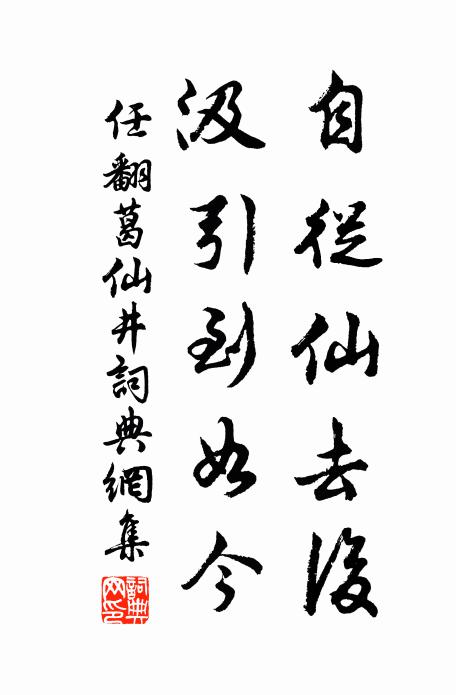 自從仙去後
汲引到如今
任翻葛仙井詞典網集
詞典
网印